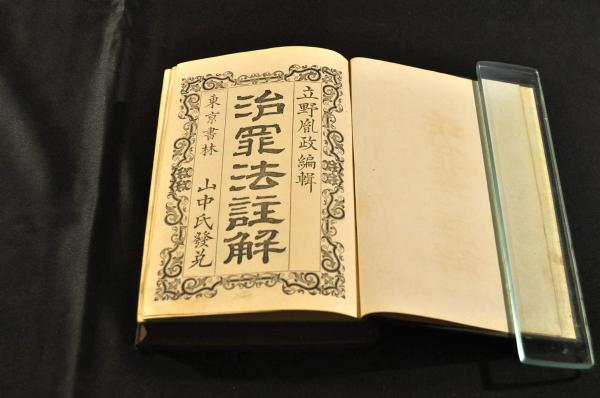 立野胤政編輯
治罪法註解
東京書林
山中氏發兌